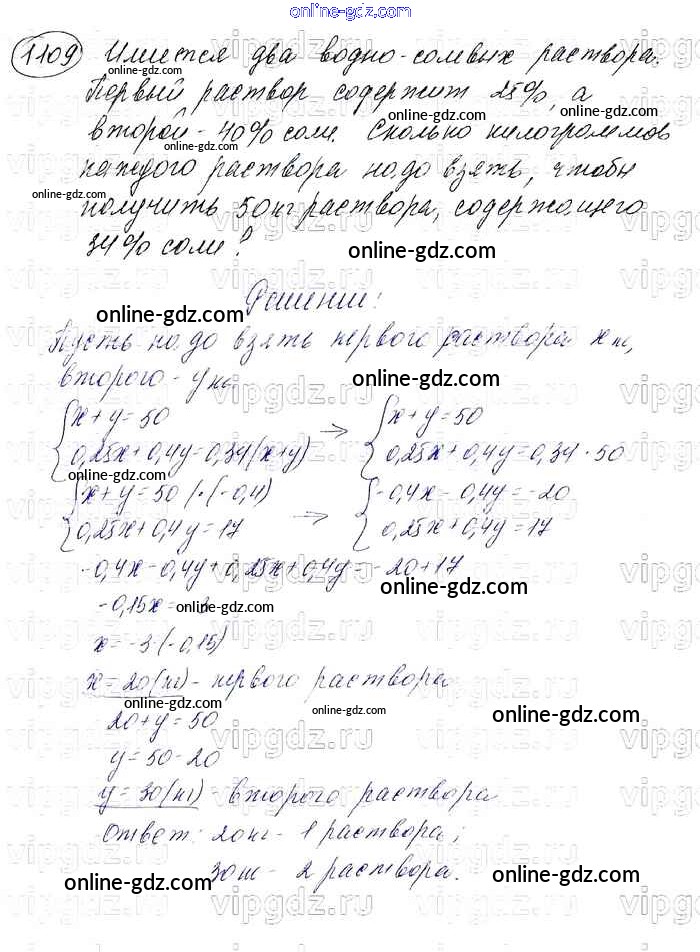 online-gdz.com
1109 Имеется два водно-солевых раствора.
online-gdz.com
Первый раствор содержит 25%, а
online-gdz.com
второй - 40% соли. Сколько килограммов
online-gdz.com
каждого раствора надо взять, чтобы
online-gdz.com
получить 50 кг раствора, содержащего
34% соли?
online-gdz.com
Решение:
online-gdz.com
Пусть надо взять первого раствора x кг,
второго - y кг.
online-gdz.com
{x+y=50 → {x+y=50
0,25x+0,4y=0,34(x+y) 0,25x+0,4y=0,34·50
online-gdz.com
{x+y=50 |·(-0,4) → {-0,4x-0,4y=-20
0,25x+0,4y=17 0,25x+0,4y=17
-0,4x-0,4y+0,25x+0,4y=-20+17
online-gdz.com
-0,15x=
online-gdz.com
x=-3:(-0,15)
x=20(кг) - первого раствора
online-gdz.com
online-gdz.com
20+y=50
online-gdz.com
y=50-20
y=30(кг) - второго раствора
Ответ: 20кг - 1 раствора;
30кг - 2 раствора.
online-gdz.com
online-gdz.com
vipgdz.ru